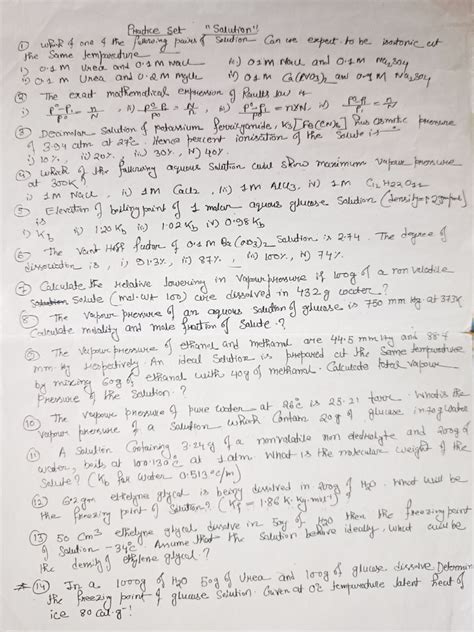 Practice Set "Solution"
① Which of one of the following pairs of Solution Can we expect to be isotonic at
the Same temperature
i) 0.1 M Urea and 0.1 M NaCl ii) 0.1 M Urea and 0.2 M MgCl2
iii) 0.1 M NaCl and 0.1 M Na2SO4 iv) 0.1 M Ca(NO3)2 and 0.1 M Na2SO4
② The exact mathematical expression of Raults law is
③ Decimolar Solution of potassium ferricyanide, K3[Fe(CN)6] has osmotic pressure
of 3.94 atm at 27°C. Hence percent ionisation of the Solute is
i) 10%, ii) 20%, iii) 30%, iv) 40%.
④ Which of the following aqueous solution will show maximum vapour pressure
at 300K?
i) 1M NaCl, ii) 1M CaCl2, iii) 1M AlCl3, iv) 1M C12H22O11
⑤ Elevation of boiling point of 1 molar aqueous glucose Solution (density =
is
i) Kb ii) 1.20 Kb iii) 1.02 Kb iv) 0.98 Kb
⑥ The Vant Hoff factor of 0.1 M Ba(NO3)2 Solution is 2.74. The degree of
dissociation is, i) 91.3%, ii) 87%, iii) 100%, iv) 74%.
⑦ Calculate the relative lowering in Vapour pressure if 100g of a non volatile
Solute (mol. wt 100) are dissolved in 432g water?
⑧ The vapour pressure of an aqueous solution of glucose is 750 mm Hg at 373K
Calculate molality and mole fraction of Solute?
⑨ The vapour pressure of ethanol and methanol are 44.5 mm Hg and 88.7
mm Hg respectively. An ideal Solution is prepared at the Same temperature
by mixing 60g of ethanol with 40g of methanol. Calculate total vapour
pressure of the Solution?
⑩ The vapour pressure of pure water at 26°C is 25.21 torr. What is the
vapour pressure of a Solution which Contains 20g of glucose in 70g water
⑪ A Solution Containing 3.24g of a nonvolatile non electrolyte and 200g of
water, boils at 100.130°C at 1 atm. What is the molecular weight of the
Solute? (Kb for water 0.513°C/m)
⑫ 6.2gm ethylene glycol is being dissolved in 200g of H2O. What will be
the freezing point of Solution? (Kf = 1.86 K kg mol-1)
⑬ 50 cm3 ethylene glycol dissolve in 50g of H2O then the freezing point
of Solution -34°C. Assume that the Solution behave ideally, what will be
the density of ethylene glycol?
* ⑭ In a 1000g of H2O 50g of Urea and 100g of glucose dissolve Determine
the freezing point of glucose Solution. Given at 0°C temperature latent heat of
ice 80 Cal g-1